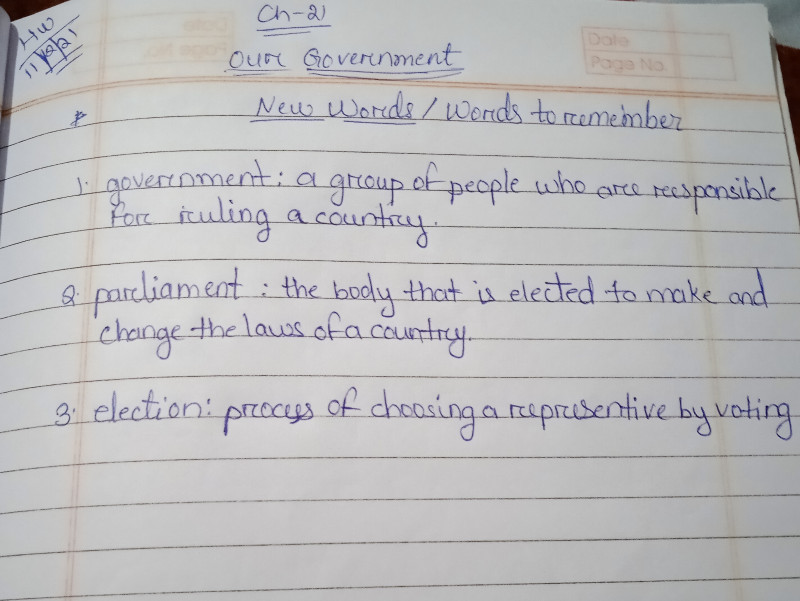 HW
11/12/21
Ch-21
Our Government
Date
Page No.
New Words / Words to remember
1. government: a group of people who are responsible
for ruling a country.
2. parliament: the body that is elected to make and
change the laws of a country.
3. election: process of choosing a representive by voting